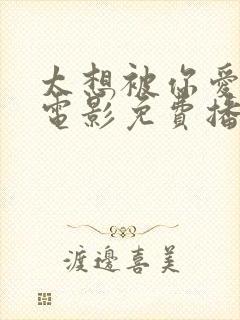 太想被你愛
電影免費播
渡邊喜美